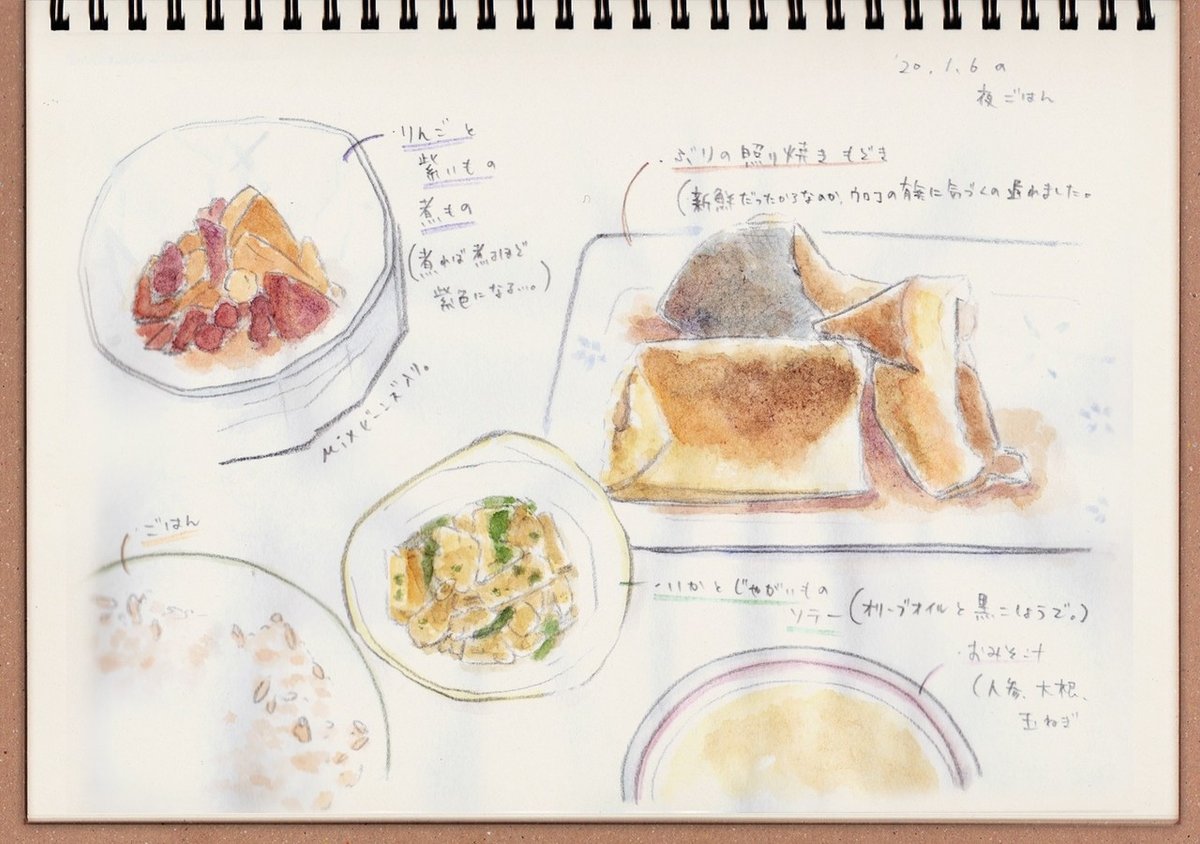 '20.1.6の
夜ごはん
・りんごと
紫いもの
煮もの
(煮れば煮るほど
紫色になるい。)
Mixビーンズ入り。
・ぶりの照り焼きもどき
(新鮮だったからなのか、ウロコの有無に気づくの遅れました。
・ごはん
・いかとじゃがいもの
ソテー(オリーブオイルと黒こしょうで。)
・おみそ汁
(人参、大根、
玉ねぎ